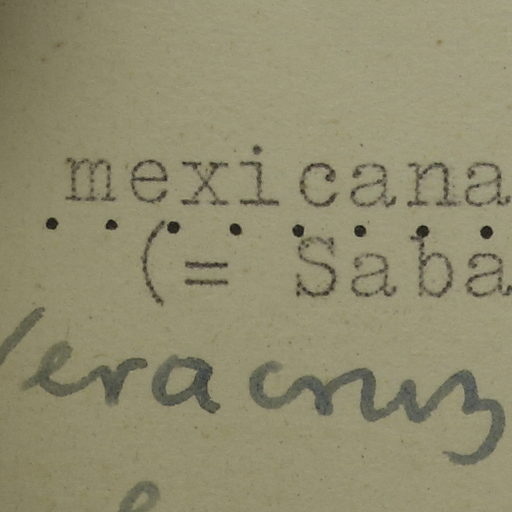 mexicana
(= Saba
Veracruz